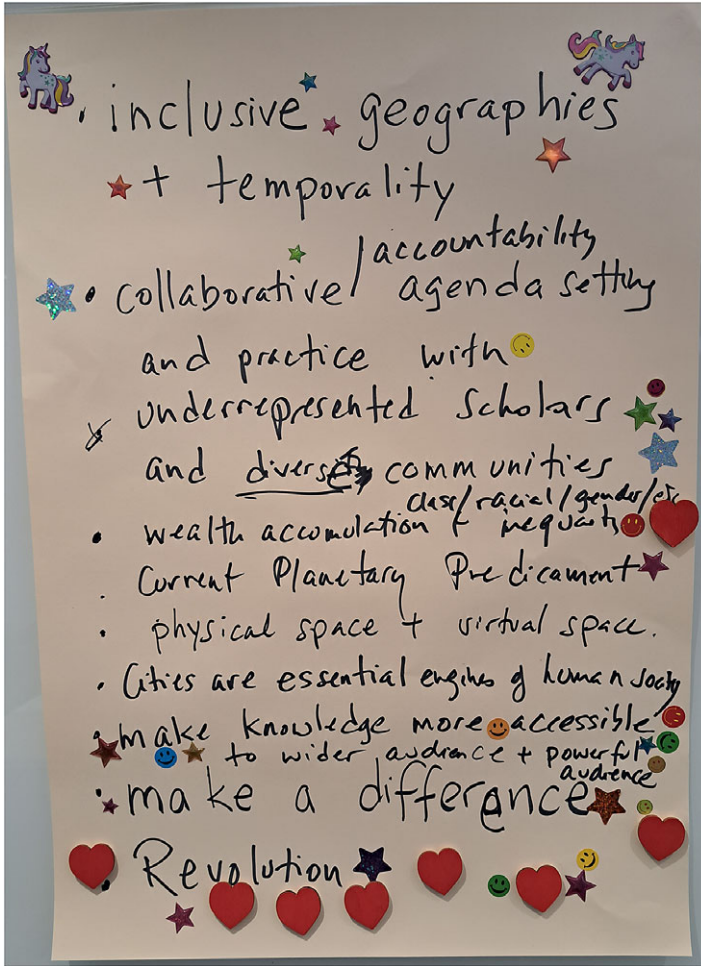 • inclusive geographies
+ temporality
/accountability
• collaborative agenda setting
and practice with
underrepresented scholars
and diverse communities
class/racial/gender/etc
• wealth accomulation +
. Current Planetary Predicament
• physical space + virtual space.
• Cities are essential engines of human society
• make knowledge more accessible
to wider audience + powerful
audience
• make a difference
• Revolution